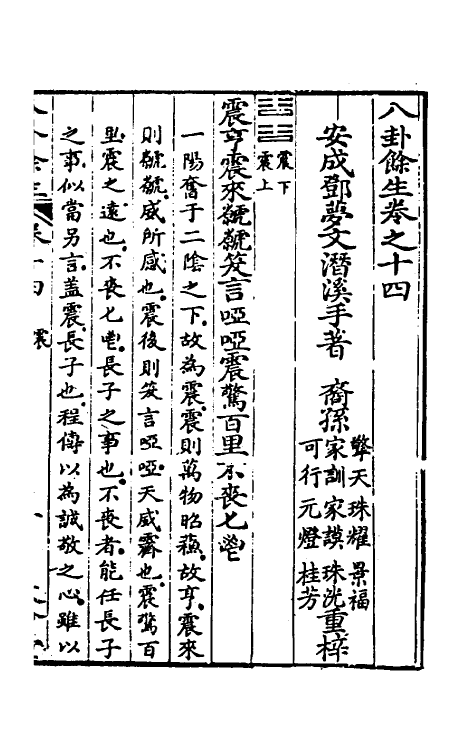 八卦餘生卷之十四
安成鄧夢文潛溪手著　裔孫
擎天　珠耀　景福
家訓　家謨　珠洸
可行　元燈　桂芳
重梓
震下
震上
震亨震來虩虩笑言啞啞震驚百里不喪匕鬯
一陽奮于二陰之下故為震震則萬物昭蘓故亨震來
則虩虩威所感也震後則笑言啞啞天威霽也震驚百
里震之遠也不喪匕鬯長子之事也不喪者能任長子
之事似當另言蓋震長子也程傳以為誠敬之心雖以
震